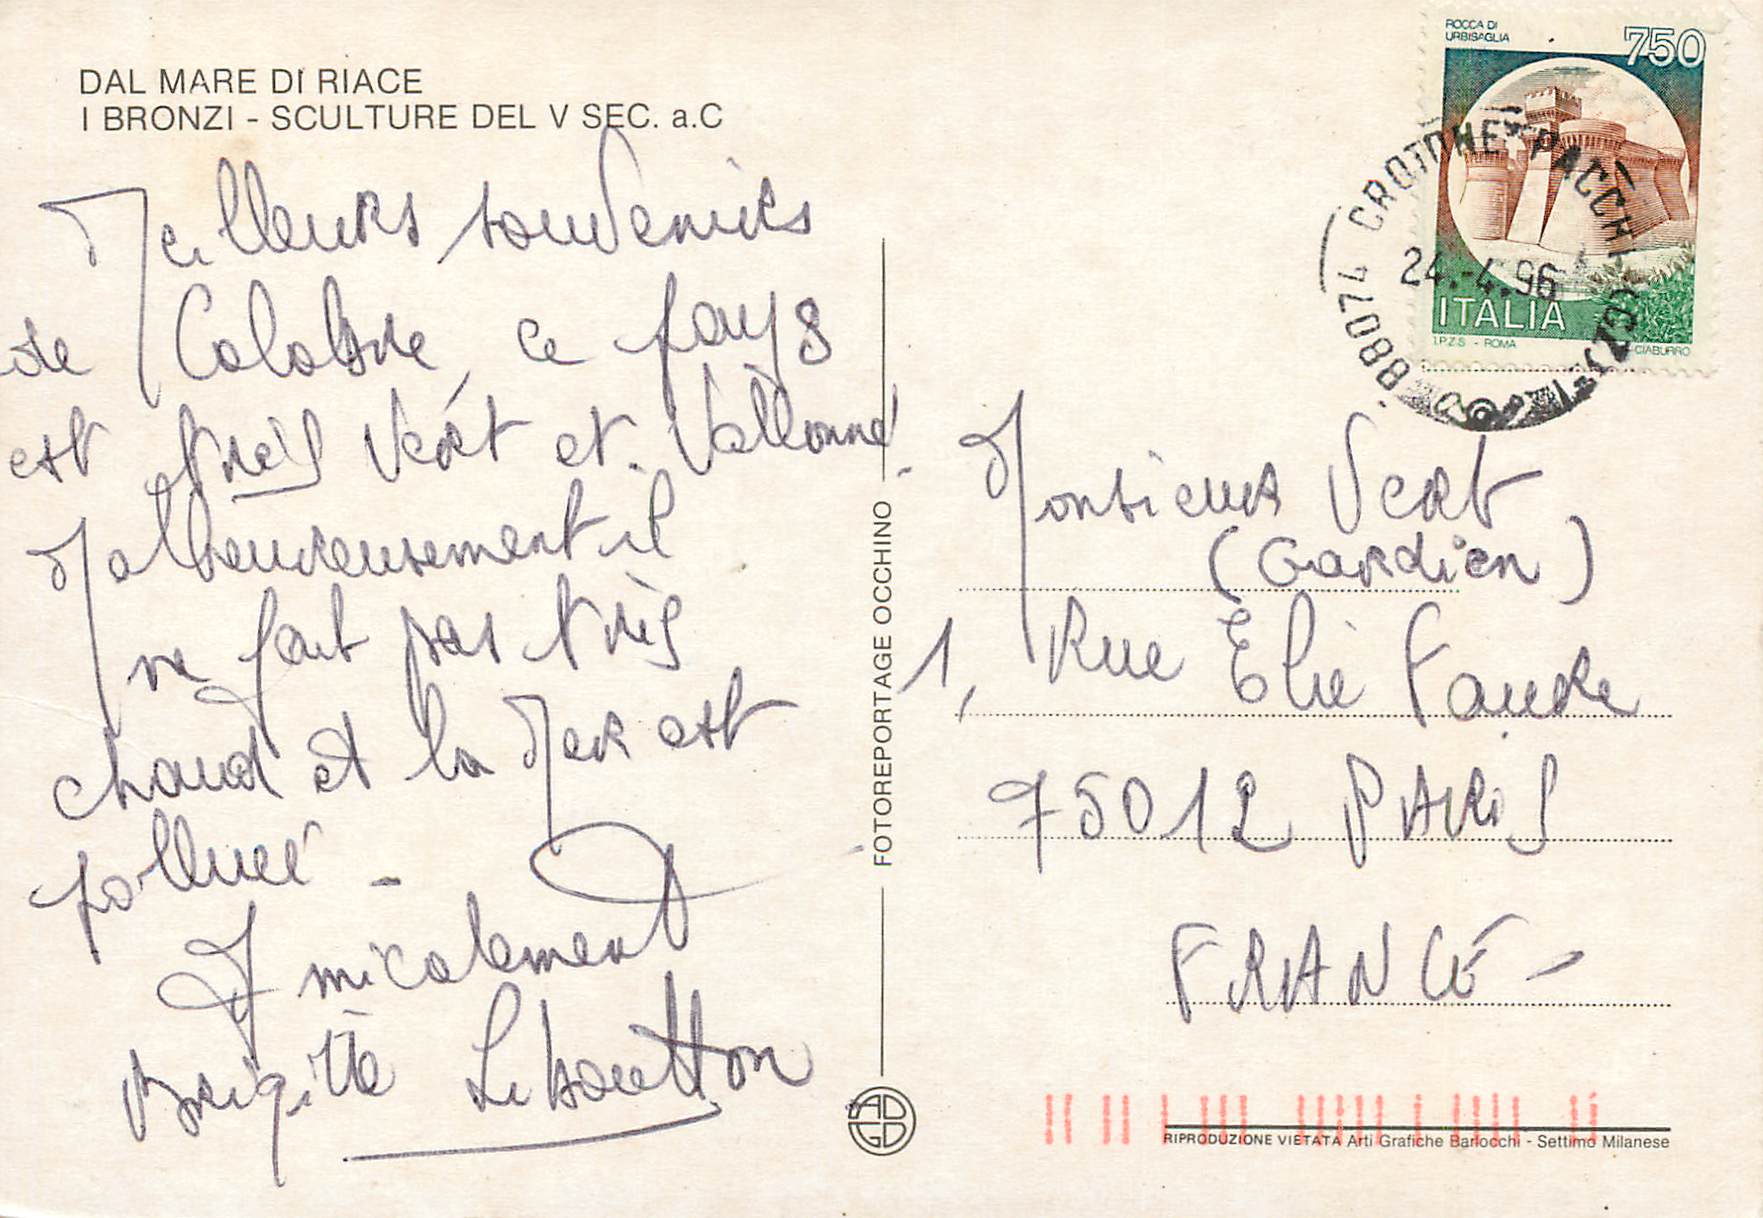 DAL MARE DI RIACE
I BRONZI - SCULTURE DEL V SEC. a.C
Meilleurs souvenirs
de Calabre, ce pays
est très vert et vallonné.
Malheureusement il
ne fait pas très
chaud et la Mer est
polluée -
Amicalement
Brigitte
FOTOREPORTAGE OCCHINO
ROCCA DI
URBISAGLIA
750
ITALIA
I.P.Z.S. - ROMA
CIABURRO
88074 CROTONE PACCHI
24.-4.96
Monsieur Vert
(Gardien)
1, Rue Elie Faure
75012 PARIS
FRANCE -
ADGD
RIPRODUZIONE VIETATA Arti Grafiche Barlocchi - Settimo Milanese